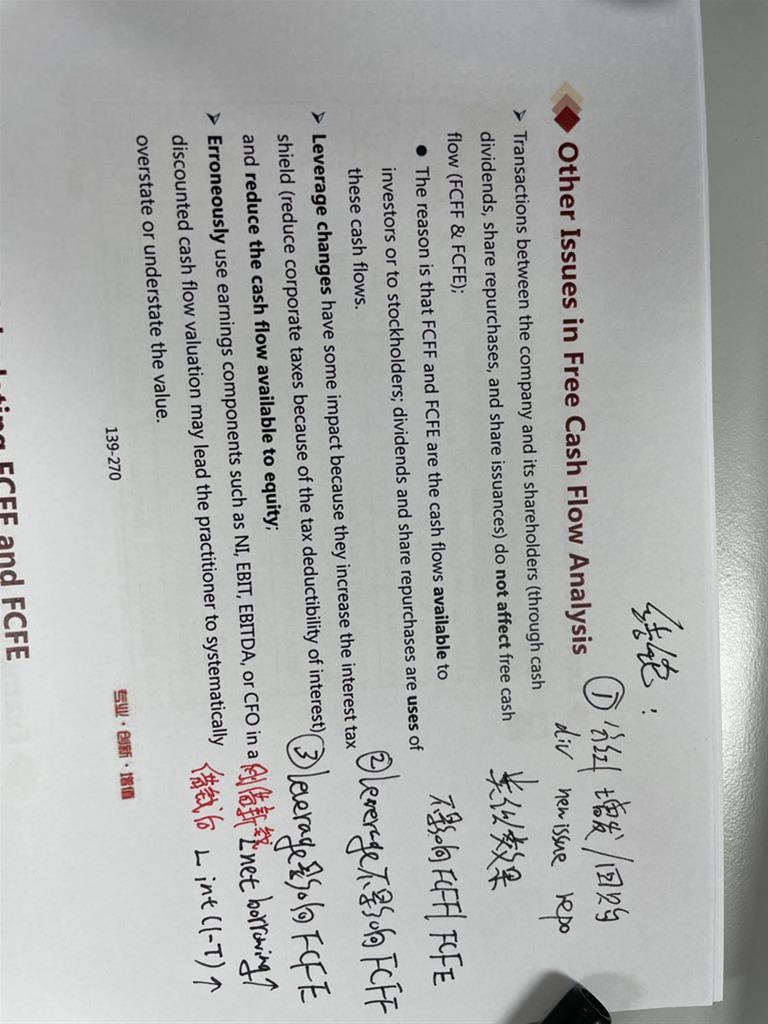 Other Issues in Free Cash Flow Analysis
➤ Transactions between the company and its shareholders (through cash
dividends, share repurchases, and share issuances) do not affect free cash
flow (FCFF & FCFE);
● The reason is that FCFF and FCFE are the cash flows available to
investors or to stockholders; dividends and share repurchases are uses of
these cash flows.
➤ Leverage changes have some impact because they increase the interest tax
shield (reduce corporate taxes because of the tax deductibility of interest)
and reduce the cash flow available to equity;
➤ Erroneously use earnings components such as NI, EBIT, EBITDA, or CFO in a
discounted cash flow valuation may lead the practitioner to systematically
overstate or understate the value.
139-270
专业·创新·增值
结论：
① 分红 增发/回购
div new issue repo
类似效果
不影响 FCFF/FCFE
② leverage 不影响 FCFF
③ leverage 影响 FCFE
刚借新钱 net borrowing↑
借钱后 int(1-T)↑
FCFF and FCFE